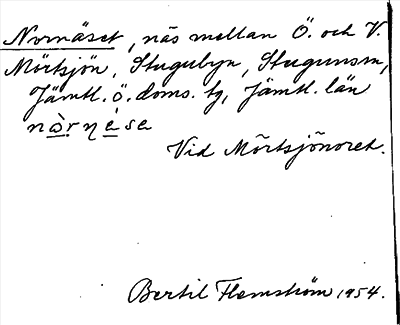 Nornäset, näs mellan Ö. och V.
Mörtsjön, Stugubyn, Stugunsm,
Jämtl. ö. doms. tg, Jämtl. län
nò̱rṇè̱se
Vid Mörtsjönoret.
Bertil Flemström 1954.